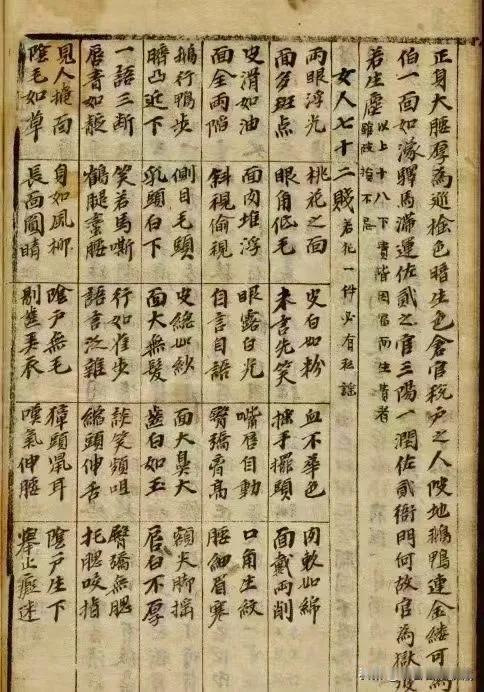 正身大腰厚為巡檢色暗生色倉官稅戶之人陂地鵝鴨連金縷可為
伯一面如濛驛馬滿運佐貳之官三陽一潤佐貳衙門何故官為獄被
若生塵 以上十八下 皆因富而生貴者
女人七十二賤 若犯一件必有私謡
兩眼浮光 桃花之面 皮白如粉 血不華色 肉軟如綿
面多斑点 眼角低毛 未言先笑 搓手擺頭 面戴兩削
皮滑如油 面肉堆浮 眼露白光 嘴唇自動 口角生紋
面全兩陷 斜視偷視 自言自語 臀蹺骨高 腰細眉寒
鵝行鴨步 側目毛頭 皮縐如紗 面大鼻大 額尖脚搖
臍凸近下 乳頭白下 面大無髮 齒白如玉 唇白不厚
一語三断 笑若馬嘶 行如雀步 談笑頻咀 臀蹺無腮
唇青如靛 鶴腿蜂腰 語言泛雜 縮頭伸舌 托腮咬指
見人掩面 身如風柳 陰戶無毛 獐頭鼠耳 陰戶生下
陰毛如草 長面圓睛 剔齒弄衣 嘆氣伸腰 舉止癡迷